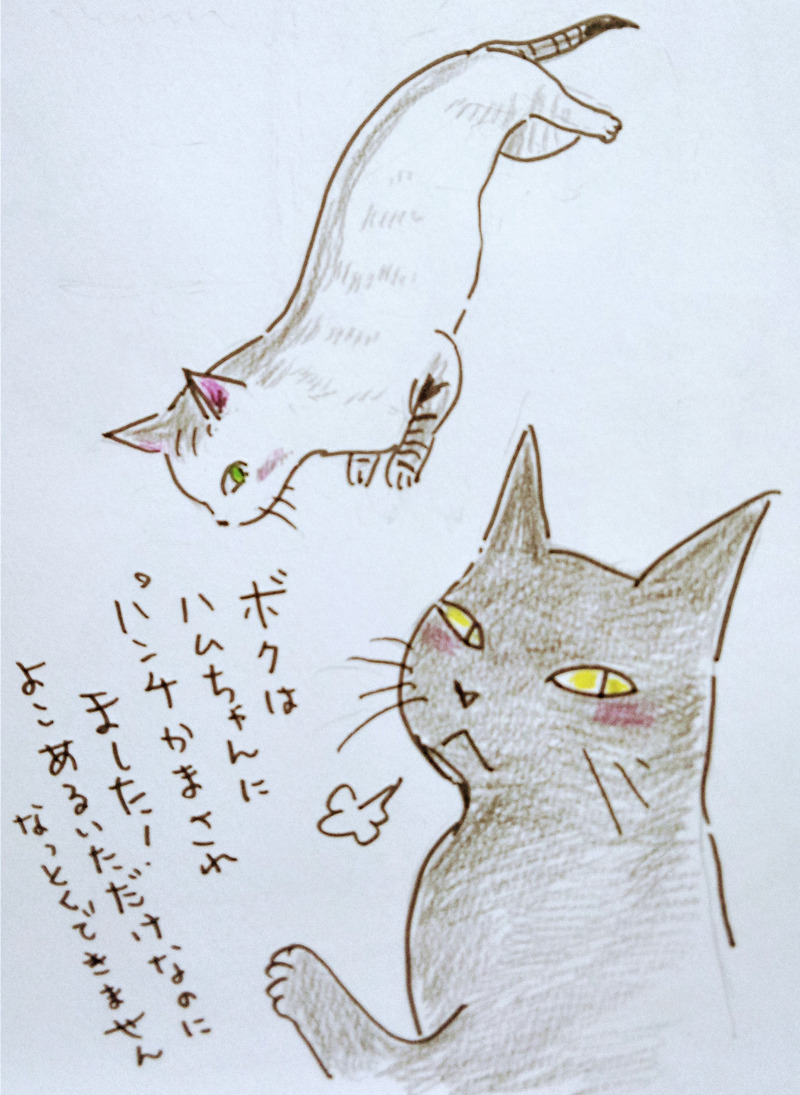 ボクは
ハムちゃんに
パンチかまされ
ました！
よこあるいただけなのに
なっとくできません